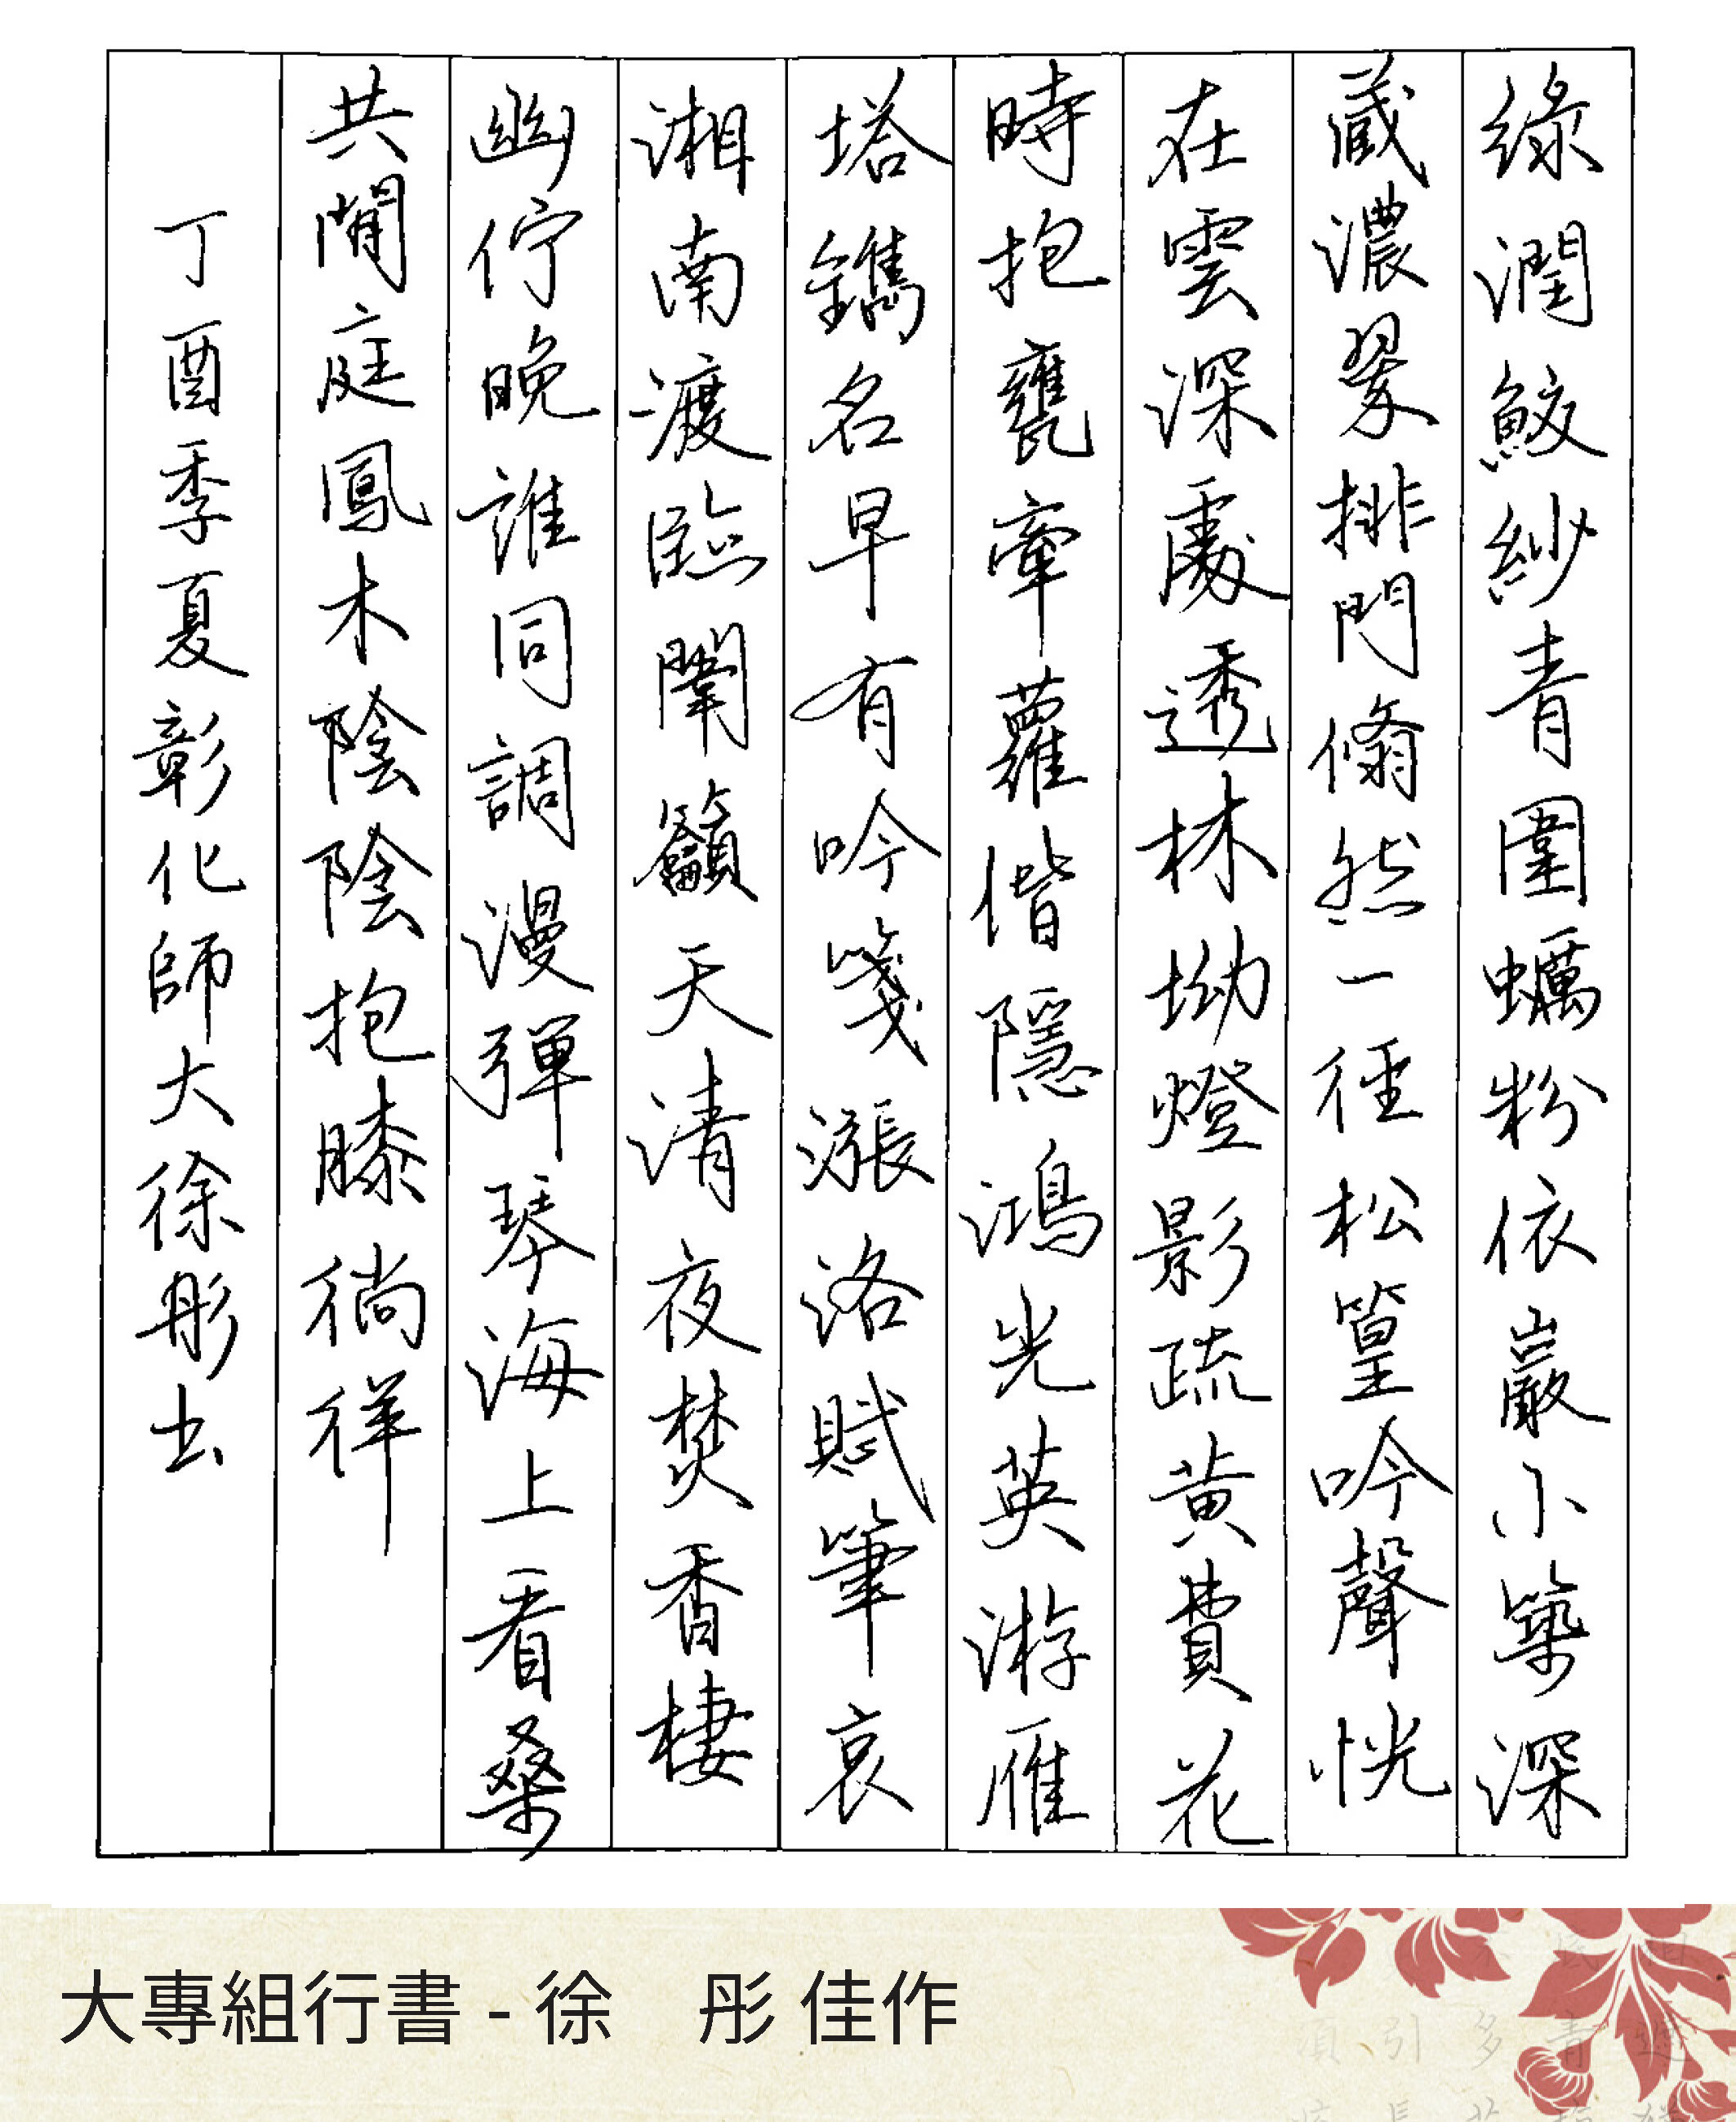 綠潤鮫紗青圍蠣粉依巖小築深
藏濃翠排門翛然一徑松篁吟聲恍
在雲深處透林坳燈影疏黃費花
時抱甕牽蘿偕隱鴻光英游雁
塔鐫名早有吟箋漲洛賦筆哀
湘南渡臨闈籟天清夜焚香棲
幽佇晚誰同調漫彈琴海上看桑
共閒庭鳳木陰陰抱膝徜徉
丁酉季夏彰化師大徐彤書
大專組行書 - 徐 彤 佳作